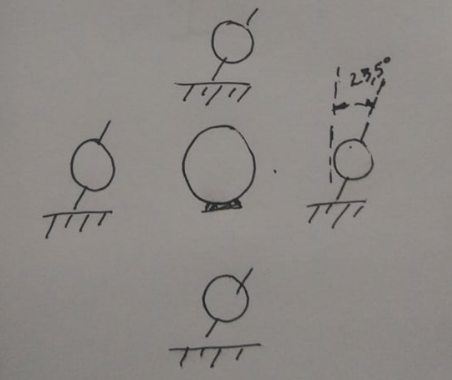 23,5°